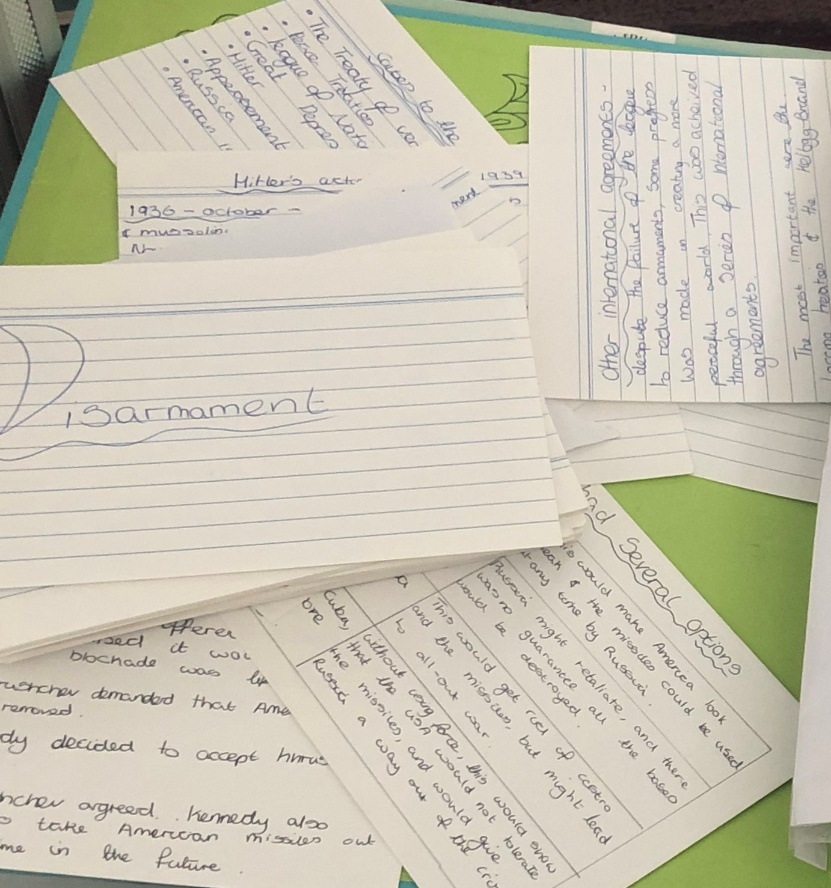 Causes to the
• The Treaty of
• Peace Treaties
• League of
• Great Depres
• Hitler
• Appeasement
• Russia
• American
Hitler's
1936 - october -
& mussolini
1939
Other international agreements -
despite the failure of the league
to reduce armaments, some progress
was made in creating a more
peaceful world. This was acheived
through a series of international
agreements.
The most important were the
treaties & the Kellogg-Briand
Disarmament
Several Options
would make America look
weak & the missiles could be used
at any time by Russia.
Russia might retaliate, and there
was no guarantee all the bases
would be destroyed.
This would get rid of castro
and the missiles, but might lead
to all-out war.
without using force, this would show
that the USA would not tolerate
the missiles, and would give
Russia a way out of the
Cuba,
it
blockade was
demanded that Ame
removed.
decided to accept
agreed. Kennedy also
take American missiles out
in the future.